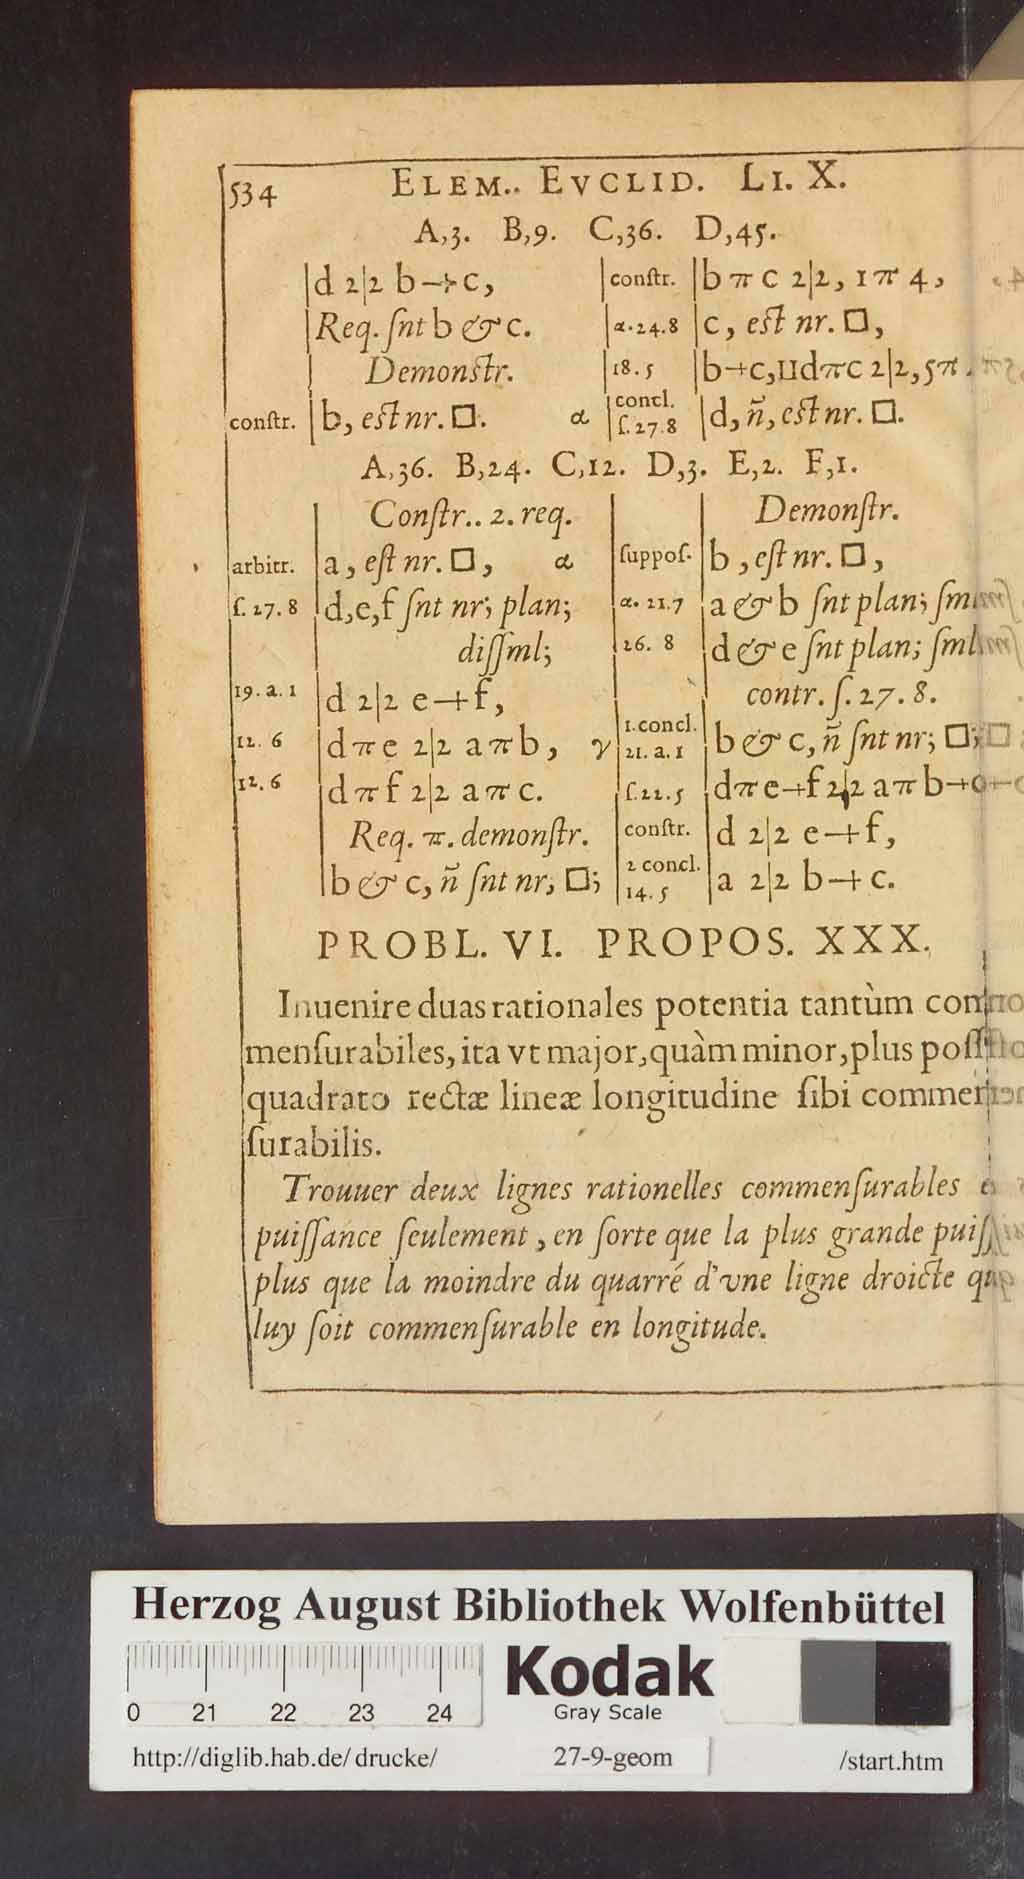 534 ELEM.. EVCLID. LI. X.
A,3. B,9. C,36. D,45.
d 2|2 b-+c,
Req. ſnt b & c.
Demonſtr.
conſtr. b, eſt nr. □. α
conſtr. b π c 2|2, 1 π 4,
α.24.8 c, eſt nr. □,
18.5 b-+c,⊔d π c 2|2, 5 π
concl.
ſ.27.8 d, ñ, eſt nr. □.
A,36. B,24. C,12. D,3. E,2. F,1.
Conſtr.. 2. req.
arbitr. a, eſt nr. □, α
ſ.27.8 d,e,f ſnt nr; plan;
diſſml;
19.a.1 d 2|2 e-+f,
12.6 d π e 2|2 a π b, γ
12.6 d π f 2|2 a π c.
Req. π. demonſtr.
b & c, ñ ſnt nr; □;
Demonſtr.
ſuppoſ. b, eſt nr. □,
α.21.7 a & b ſnt plan; ſml
26.8 d & e ſnt plan; ſml
contr. ſ.27.8.
1.concl.
21.a.1 b & c, ñ ſnt nr; □;
ſ.22.5 d π e-+f 2|2 a π b-+c
conſtr. d 2|2 e-+f,
2 concl.
14.5 a 2|2 b-+c.
PROBL. VI. PROPOS. XXX.
Inuenire duas rationales potentia tantùm com
menſurabiles, ita vt major, quàm minor, plus poſſ
quadrato rectæ lineæ longitudine ſibi commen
ſurabilis.
Trouuer deux lignes rationelles commenſurables e
puiſſance ſeulement, en ſorte que la plus grande puiſſ
plus que la moindre du quarré d'vne ligne droicte qu
luy ſoit commenſurable en longitude.
Herzog August Bibliothek Wolfenbüttel
0 21 22 23 24
Kodak
Gray Scale
http://diglib.hab.de/drucke/ 27-9-geom /start.htm